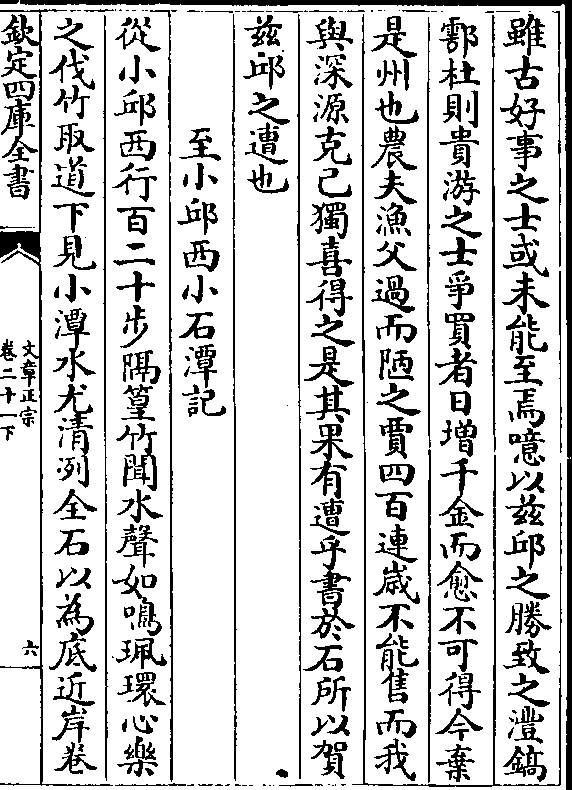 雖古好事之士或未能至焉噫以兹邱之勝致之灃鎬
鄠杜則貴游之士爭買者日増千金而愈不可得今棄
是州也農夫漁父過而陋之賈四百連嵗不能售而我
與深源克己獨喜得之是其果有遭乎書於石所以賀
兹邱之遭也
至小邱西小石潭記
從小邱西行百二十步隔篁竹聞水聲如鳴珮環心樂
之伐竹取道下見小潭水尤清冽全石以為底近岸卷
欽定四庫全書
文章正宗
卷二十一下
六